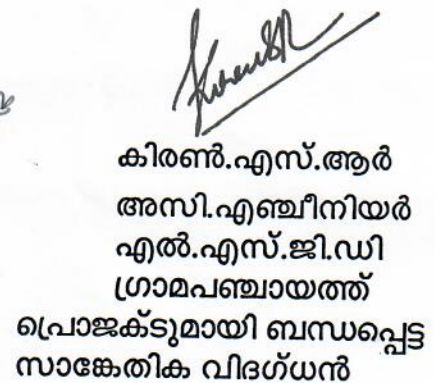 കിരൺ.എസ്.ആർ
അസി.എഞ്ചീനിയർ
എൽ.എസ്.ജി.ഡി
ഗ്രാമപഞ്ചായത്ത്
പ്രൊജക്ടുമായി ബന്ധപ്പെട്ട
സാങ്കേതിക വിദഗ്ധൻ